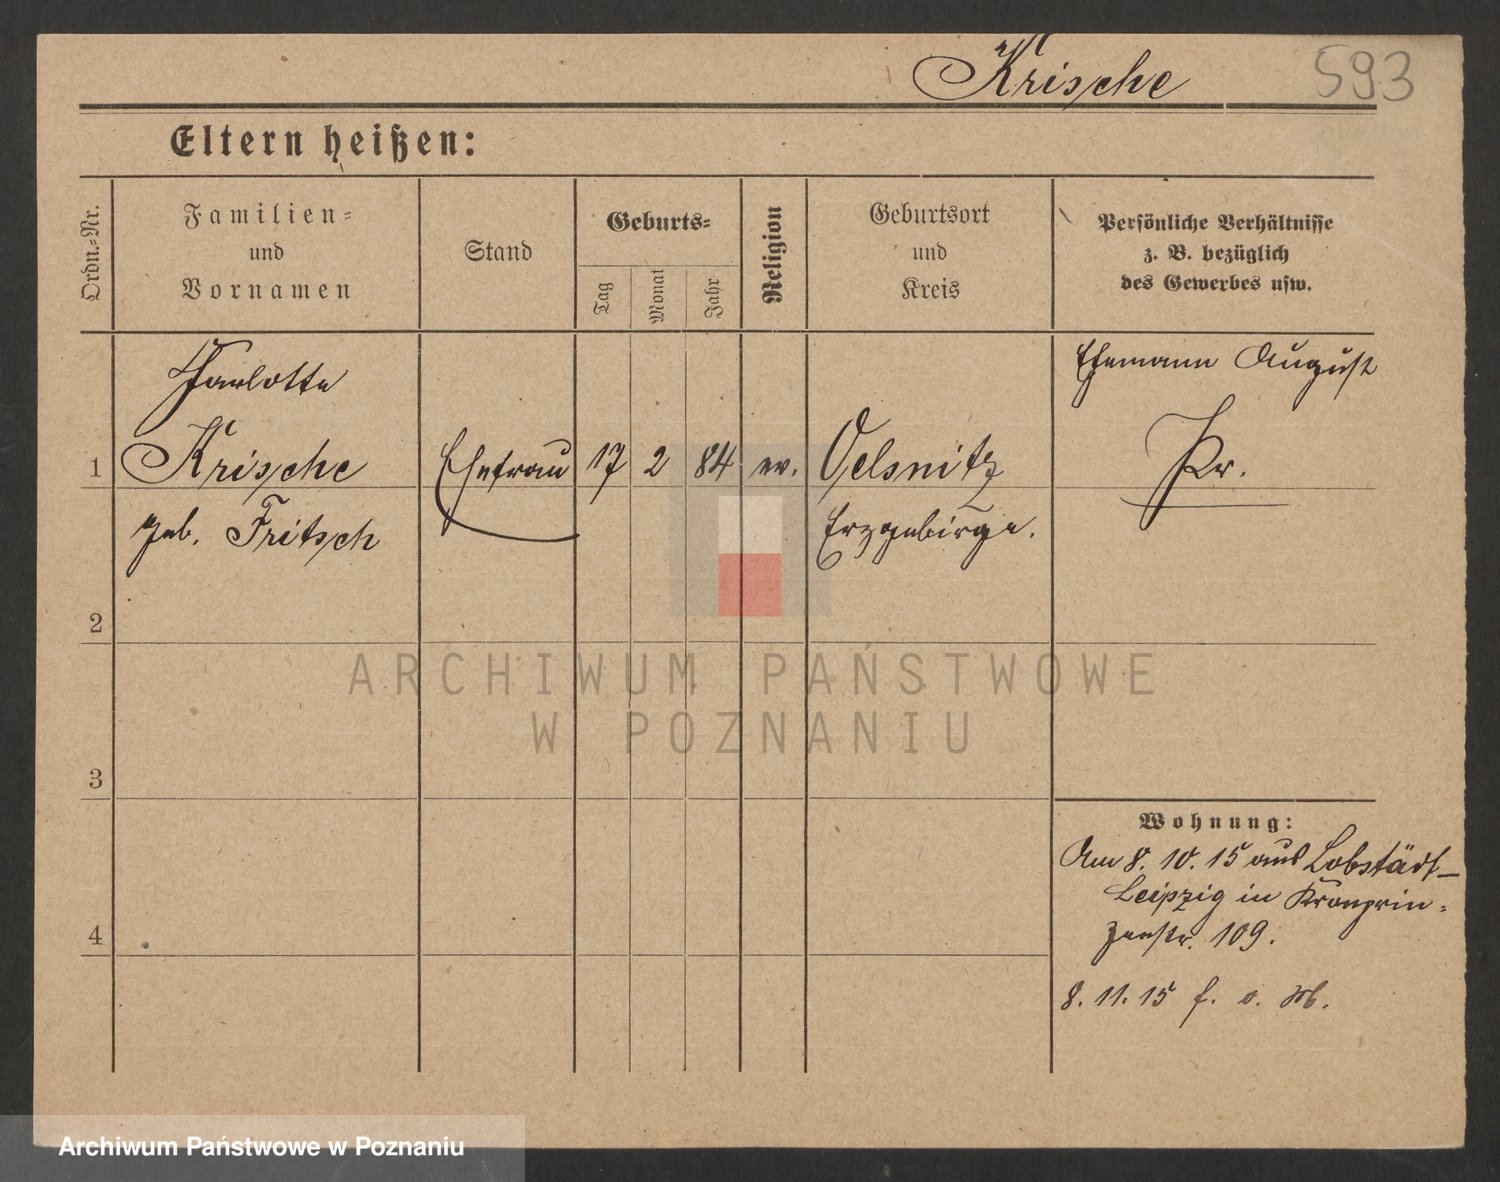 Krische 593
Eltern heißen:
Ordn.=Nr.
Familien=
und
Vornamen
Stand
Geburts=
Tag
Monat
Jahr
Religion
Geburtsort
und
Kreis
Persönliche Verhältnisse
z. B. bezüglich
des Gewerbes usw.
Charlotte
Ehemann August
1 Krische Ehefrau 17 2 84 ev. Oelsnitz Kr.
geb. Fritsch Erzgebirge.
2
3
4
Wohnung:
Am 8. 10. 15 aus Lobstädt-
Leipzig in Kronprin=
zenstr. 109.
8. 11. 15
ARCHIWUM PAŃSTWOWE
W POZNANIU
Archiwum Państwowe w Poznaniu